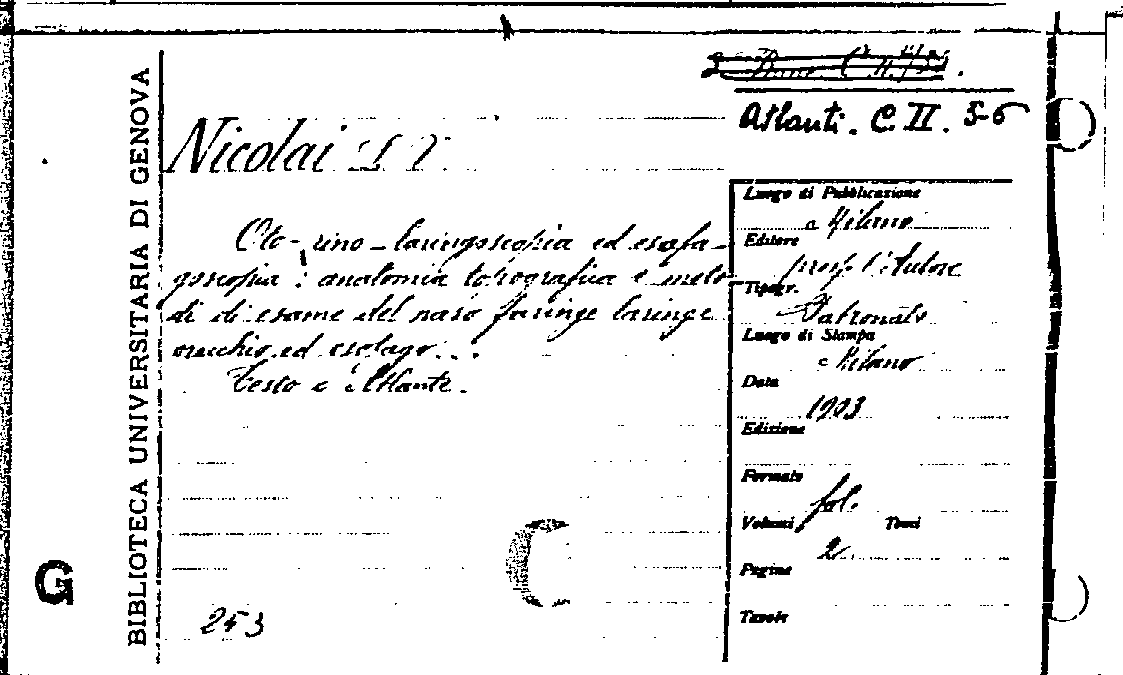 Atlanti. C. II. 5-6
BIBLIOTECA UNIVERSITARIA DI GENOVA
G
Nicolai
Oto-rino-laringoscopia ed esofa-
goscopia: anatomia topografica e meto
di di esame del naso faringe laringe
orecchio ed esofago...
Testo e Atlante.
253
Luogo di Pubblicazione
Milano
Editore
l'Autore
Tipogr.
Patronato
Luogo di Stampa
Milano
Data
1903
Edizione
Formato
fol.
Volumi Tomi
2
Pagine
Tavole